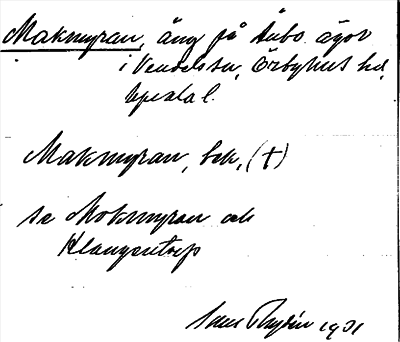 Makmyran, äng på Åbo ägor
i Vendels sn, Örbyhus hd,
Upsala l.
Makmyran, bek, (†)
se Mokmyran och
Klangentorp
1901